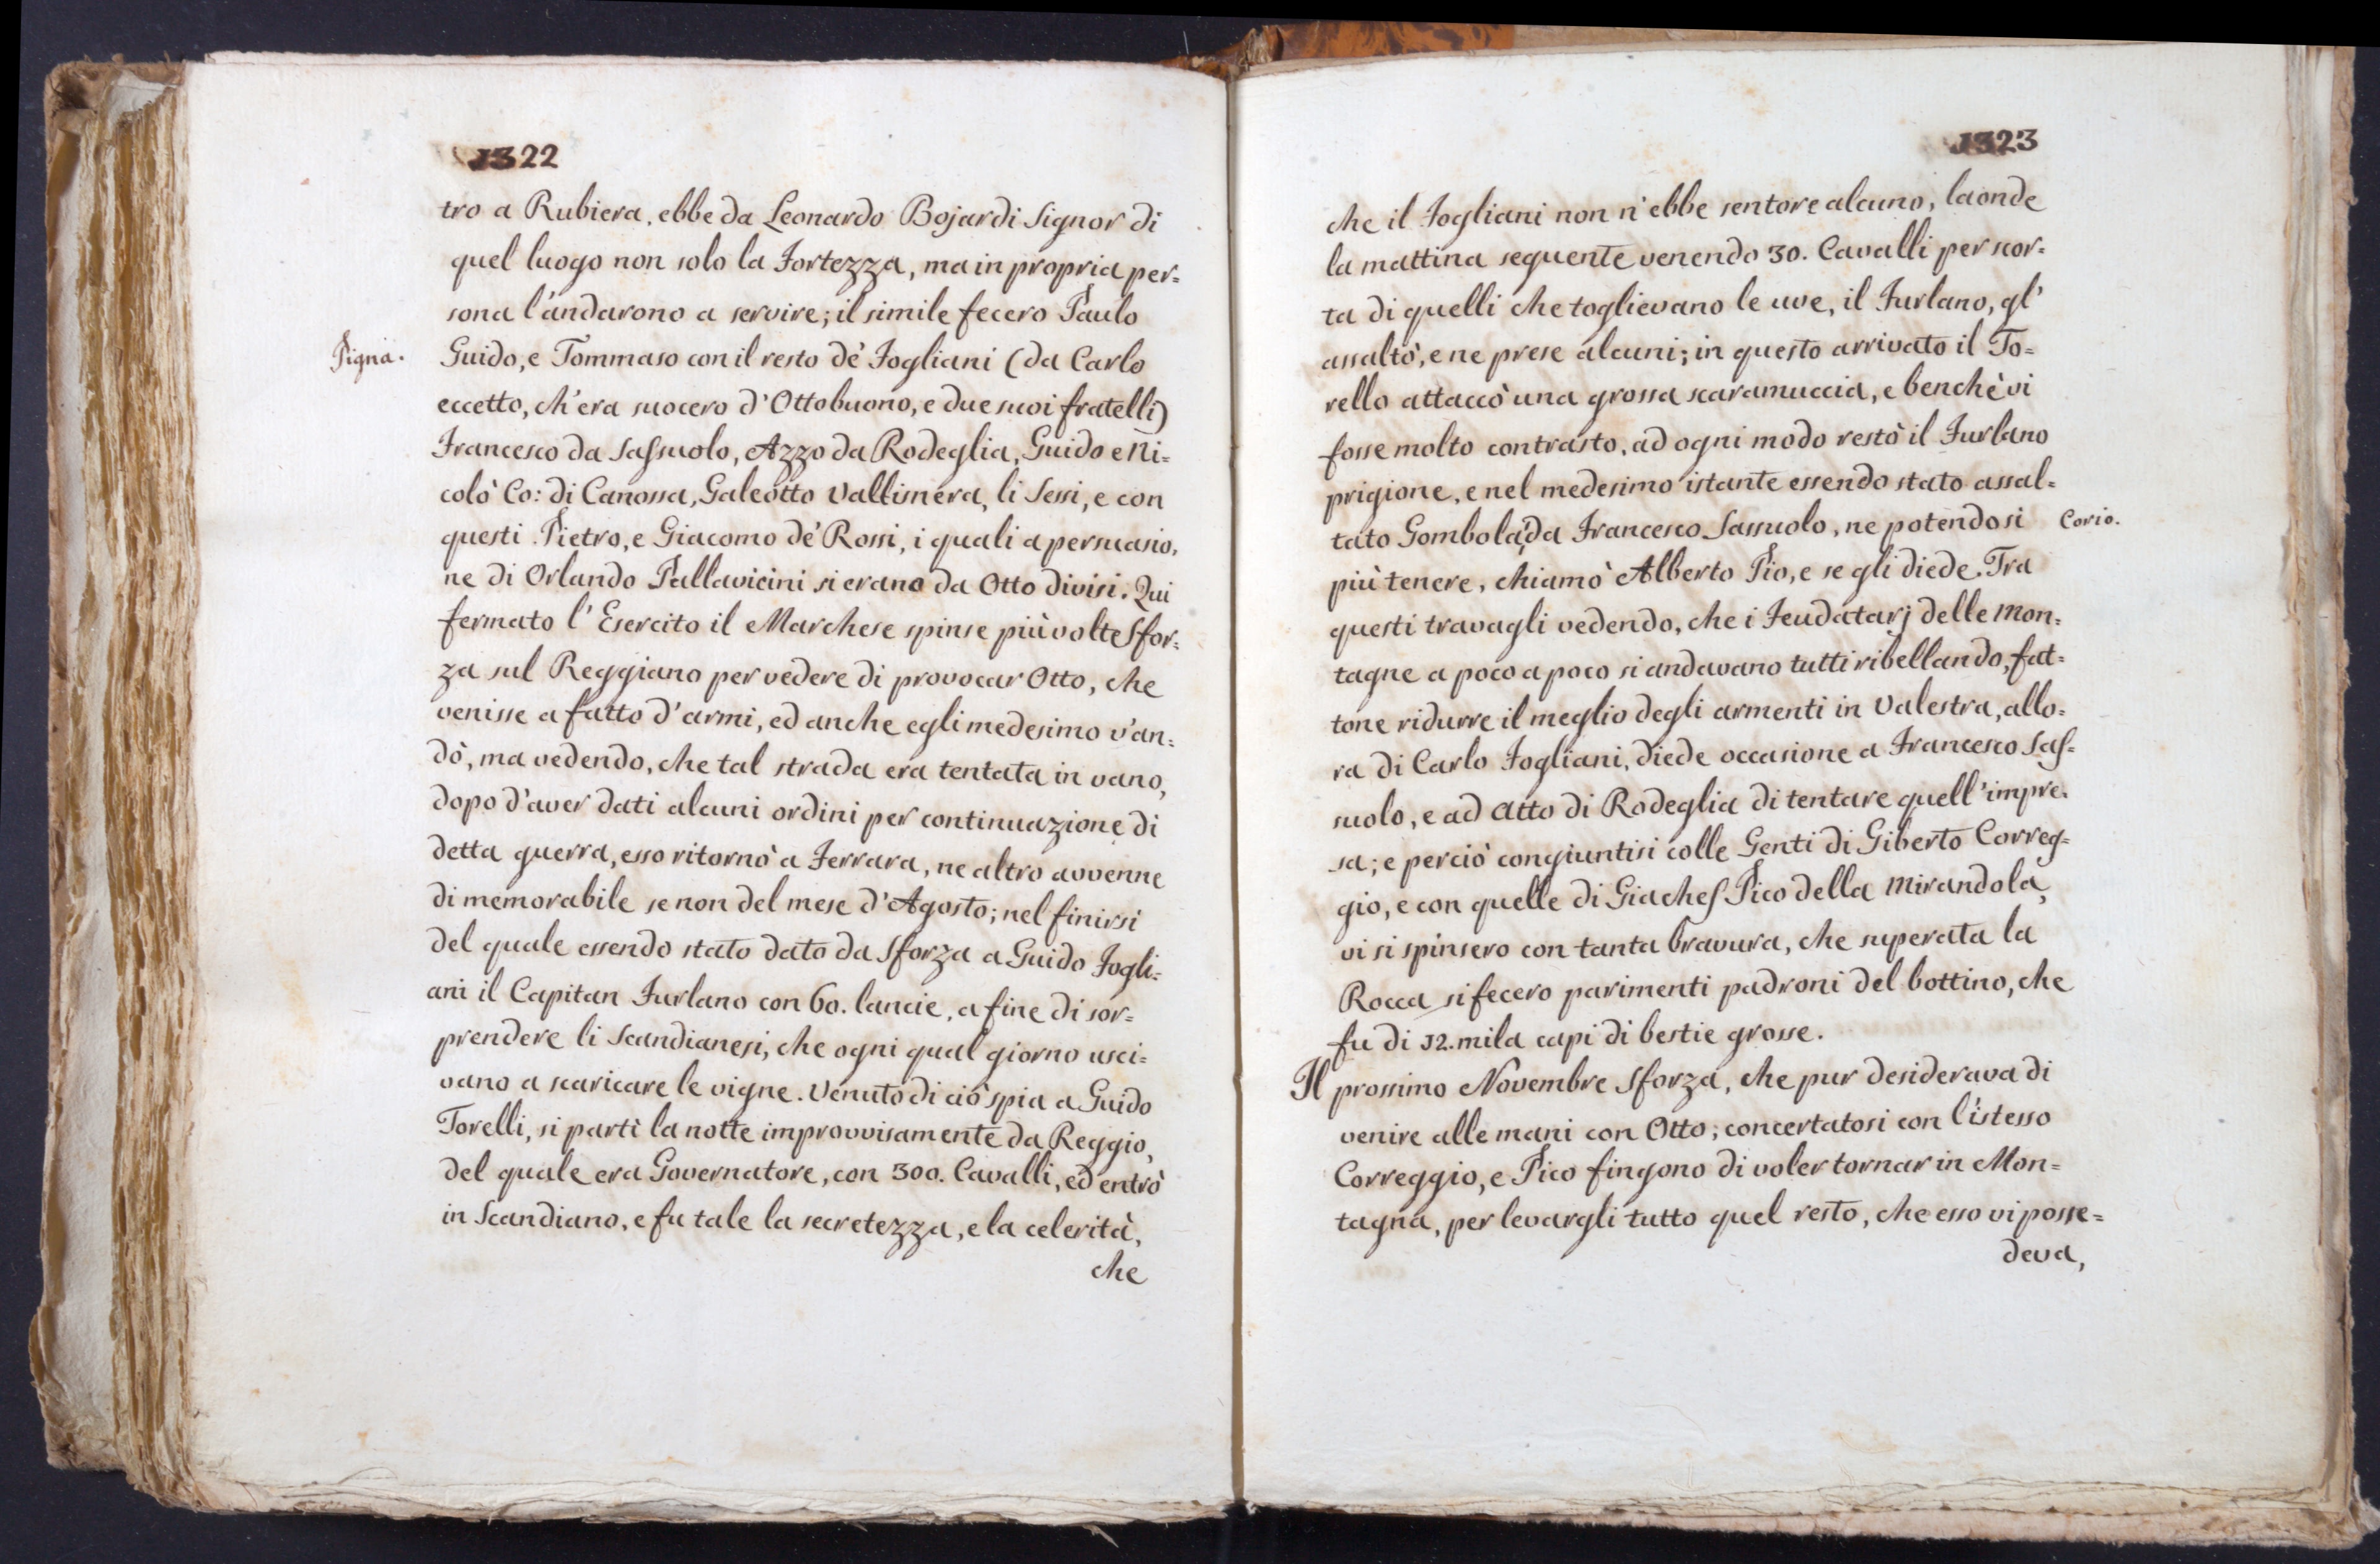 1322
tro a Rubiera, ebbe da Leonardo Bojardi Signor di
quel luogo non solo la Fortezza, ma in propria per=
sona l'andarono a servire; il simile fecero Paulo
Pigna.
Guido, e Tommaso con il resto de' Fogliani (da Carlo
eccetto, ch'era suocero d'Ottobuono, e due suoi fratelli)
Francesco da Saſsuolo, Azzo da Rodeglia, Guido e Ni=
colò Co: di Canossa, Galeotto Vallisnera, li Sessi, e con
questi Pietro, e Giacomo de' Rossi, i quali a persuasio,
ne di Orlando Pallavicini si erano da Otto divisi. Qui
fermato l'Esercito il Marchese spinse più volte Sfor=
za sul Reggiano per vedere di provocar Otto, che
venisse a fatto d'armi, ed anche egli medesimo v'an=
dò, ma vedendo, che tal strada era tentata in vano,
dopo d'aver dati alcuni ordini per continuazione di
detta guerra, esso ritornò a Ferrara, ne altro avvenne
di memorabile se non del mese d'Agosto; nel finirsi
del quale essendo stato dato da Sforza a Guido Fogli=
ani il Capitan Furlano con 60. lancie, a fine di sor=
prendere li Scandianesi, che ogni qual giorno usci=
vano a scaricare le vigne. Venuto di ciò spia a Guido
Torelli, si partì la notte improvvisamente da Reggio,
del quale era Governatore, con 300. Cavalli, ed entrò
in Scandiano, e fu tale la secretezza, e la celerità,
che
1323
che il Fogliani non n'ebbe sentore alcuno, laonde
la mattina seguente venendo 30. Cavalli per scor=
ta di quelli che toglievano le uve, il Furlano, gl'
assaltò, e ne prese alcuni; in questo arrivato il To=
rello attaccò una grossa scaramuccia, e benchè vi
fosse molto contrasto, ad ogni modo restò il Furlano
prigione, e nel medesimo istante essendo stato assal=
tato Gombola, da Francesco Sassuolo, ne potendosi
Corio.
più tenere, chiamò Alberto Pio, e se gli diede. Tra
questi travagli vedendo, che i Feudatarj delle Mon=
tagne a poco a poco si andavano tutti ribellando, fat=
tone ridurre il meglio degli armenti in Valestra, allo=
ra di Carlo Fogliani, diede occasione a Francesco Saſ=
suolo, e ad Atto di Rodeglia di tentare quell'impre.
sa; e perciò congiuntisi colle Genti di Giberto Correg=
gio, e con quelle di Giacheſ Pico della Mirandola,
vi si spinsero con tanta bravura, che superata la
Rocca si fecero parimenti padroni del bottino, che
fu di 12. mila capi di bestie grosse.
Il prossimo Novembre Sforza, che pur desiderava di
venire alle mani con Otto; concertatosi con l'istesso
Correggio, e Pico fingono di voler tornar in Mon=
tagna, per levargli tutto quel resto, che esso vi posse=
deva,